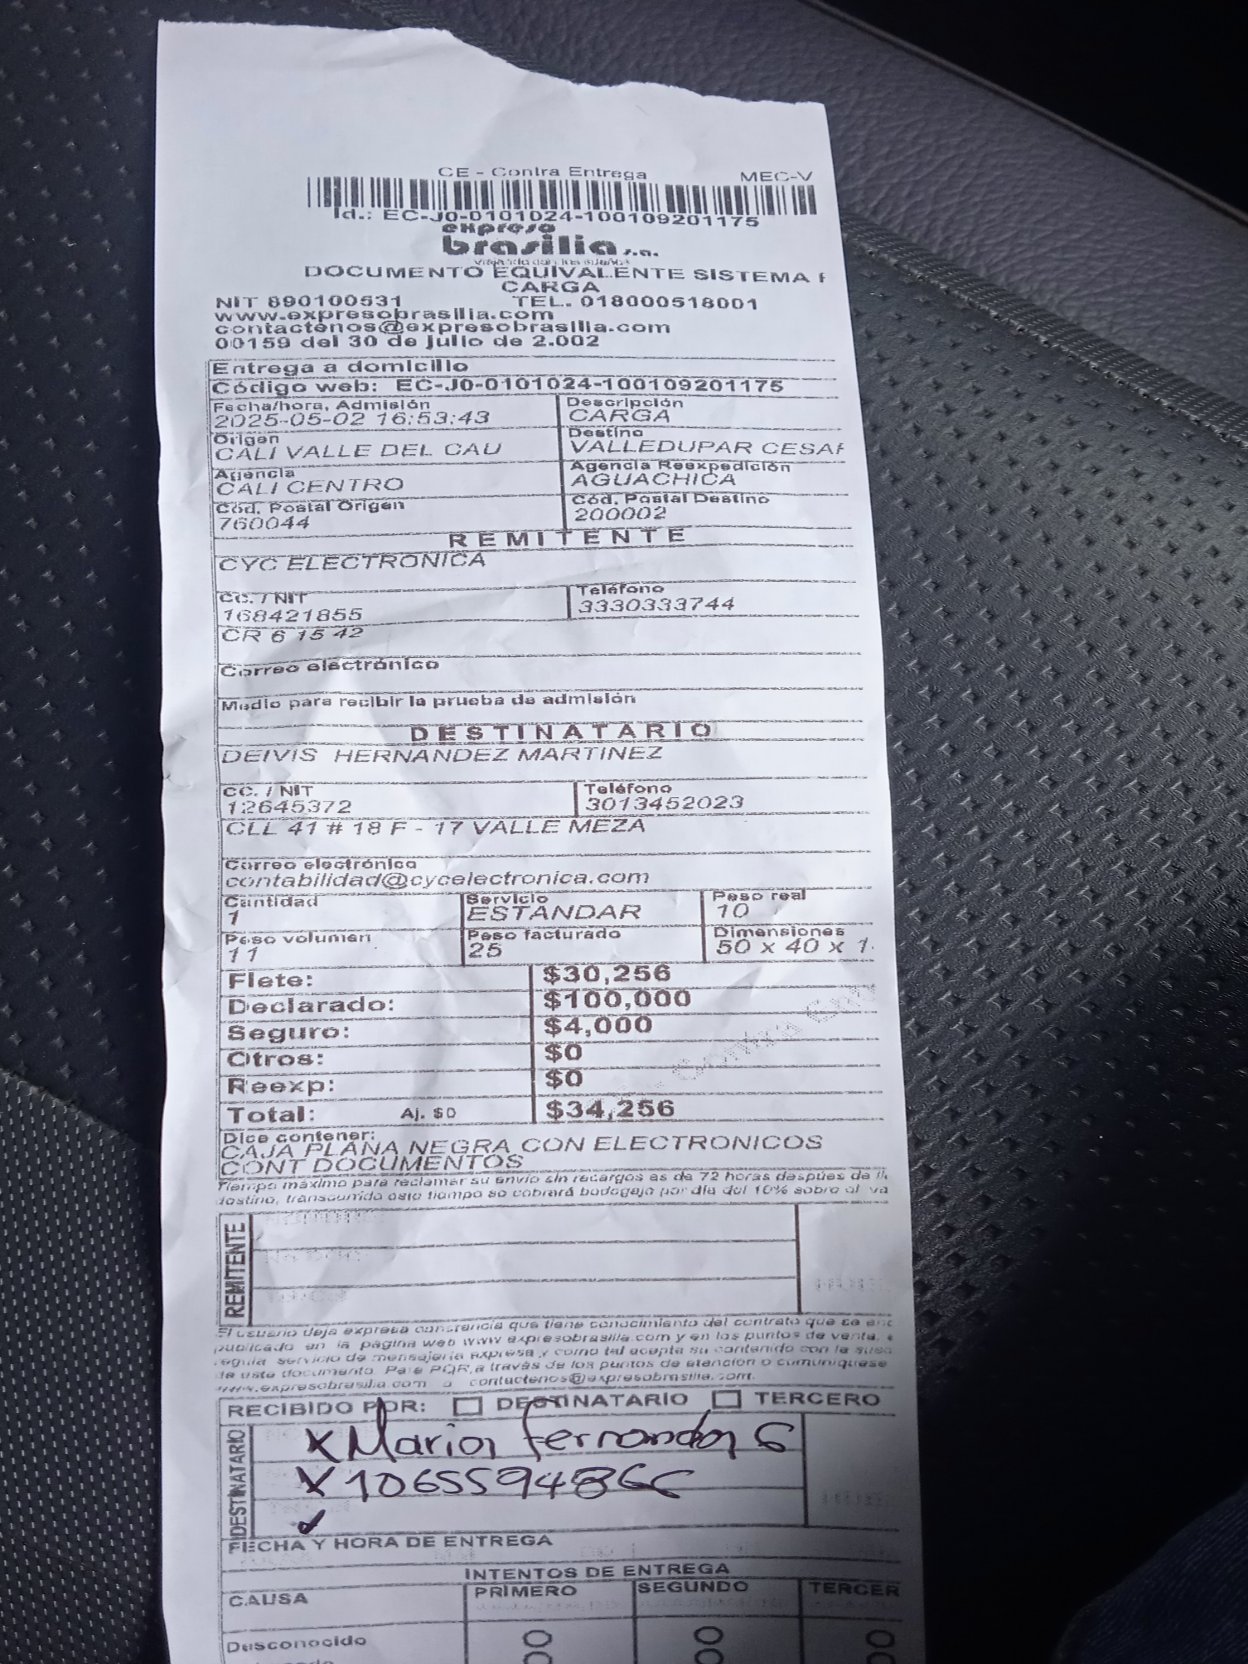 CE - Contra Entrega MEC-V
Id.: EC-J0-0101024-100109201175
expreso
brasilia s.a.
DOCUMENTO EQUIVALENTE SISTEMA P
CARGA
NIT 890100531 TEL. 018000518001
www.expresobrasilia.com
contactenos@expresobrasilia.com
00159 del 30 de julio de 2.002
Entrega a domicilio
Código web: EC-J0-0101024-100109201175
Fecha/hora, Admisión Descripción
2025-05-02 16:53:43 CARGA
Origen Destino
CALI VALLE DEL CAU VALLEDUPAR CESAR
Agencia Agencia Reexpedición
CALI CENTRO AGUACHICA
Cód. Postal Origen Cód. Postal Destino
760044 200002
REMITENTE
CYC ELECTRONICA
CC. / NIT Teléfono
168421855 3330333744
CR 6 15 42
Correo electrónico
Medio para recibir la prueba de admisión
DESTINATARIO
DEIVIS HERNANDEZ MARTINEZ
CC. / NIT Teléfono
12645372 3013452023
CLL 41 # 18 F - 17 VALLE MEZA
Correo electrónico
contabilidad@cycelectronica.com
Cantidad Servicio Peso real
1 ESTANDAR 10
Peso volumen Peso facturado Dimensiones
11 25 50 x 40 x 1
Flete: $30,256
Declarado: $100,000
Seguro: $4,000
Otros: $0
Reexp: $0
Total: Aj. $0 $34,256
Dice contener:
CAJA PLANA NEGRA CON ELECTRONICOS
CONT DOCUMENTOS
Tiempo máximo para reclamar su envío sin recargos es de 72 horas después de
destino, transcurrido este tiempo se cobrará bodegaje por día del 10% sobre el va
REMITENTE
El usuario deja expresa constancia que tiene conocimiento del contrato que se enc
publicado en la página web www expresobrasilia.com y en los puntos de venta,
regula servicio de mensajería expresa y como tal acepta su contenido con la susc
de este documento. Para PQR, a través de los puntos de atención o comuníquese
www.expresobrasilia.com o contactenos@expresobrasilia.com.
RECIBIDO POR: DESTINATARIO TERCERO
DESTINATARIO
X Maria fernanda G
X 1065594866
FECHA Y HORA DE ENTREGA
INTENTOS DE ENTREGA
CAUSA PRIMERO SEGUNDO TERCER
Desconocido